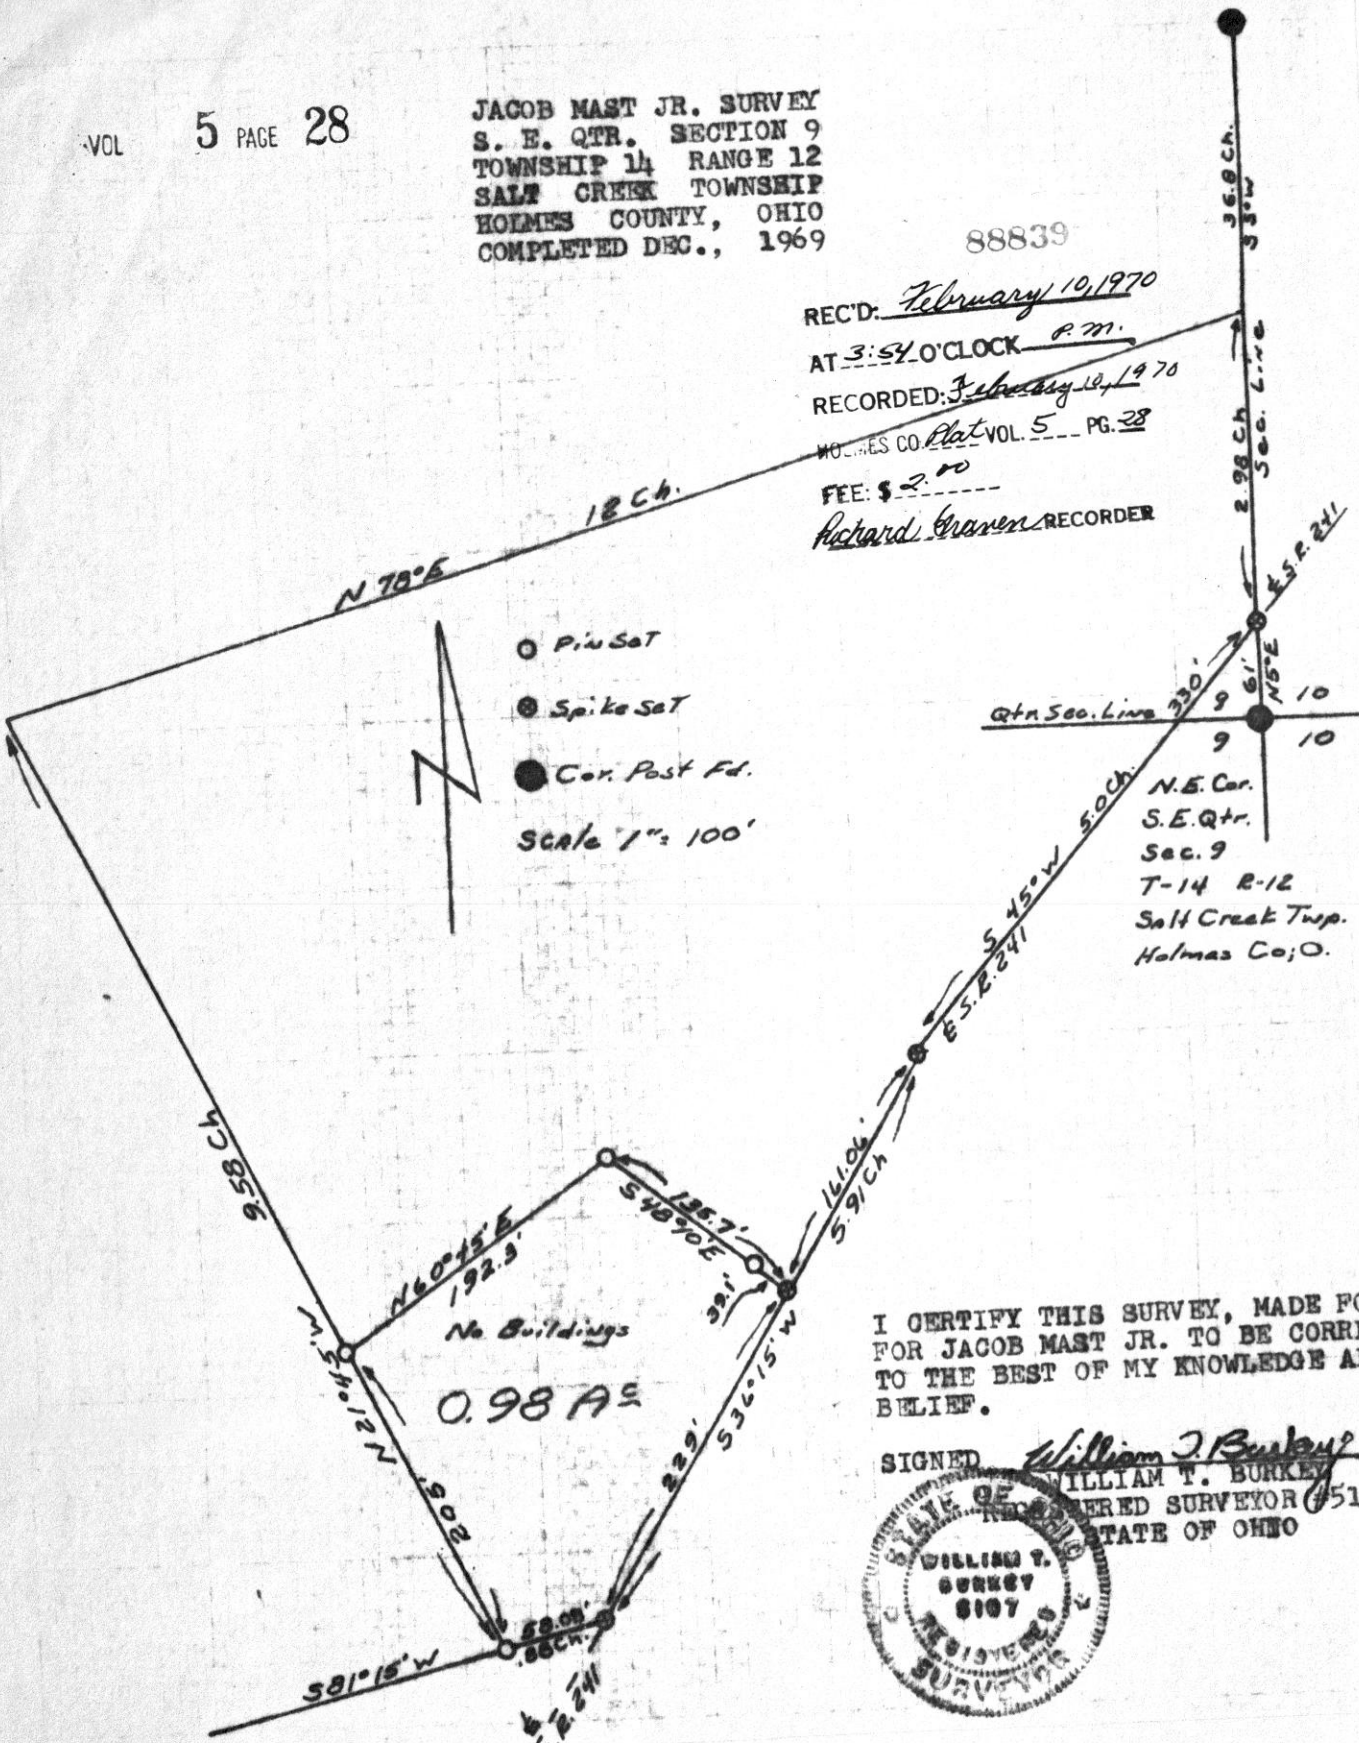 VOL 5 PAGE 28
JACOB MAST JR. SURVEY
S. E. QTR. SECTION 9
TOWNSHIP 14 RANGE 12
SALT CREEK TOWNSHIP
HOLMES COUNTY, OHIO
COMPLETED DEC., 1969
88839
REC'D: February 10, 1970
AT 3:54 O'CLOCK P.M.
RECORDED: February 10, 1970
HOLMES CO. Plat VOL. 5 PG. 28
FEE: $ 2.00
Richard Graven RECORDER
36.8 Ch.
S 3° W
2.98 Ch
Sec. Line
12 Ch.
N 78° E
Pin Set
Spike Set
Cor. Post Fd.
Scale 1" = 100'
N
₠ S.R. 241
61'
N5°E
330'
Qtr. Sec. Line
9 10
9 10
N.E. Cor.
S.E. Qtr.
Sec. 9
T-14 R-12
Salt Creek Twp.
Holmes Co; O.
5.0 Ch.
S 45° W
S.R. 241
9.58 Ch
161.06'
5.91 Ch
135.7'
S 48°10' E
39.1'
N 60°45' E
192.3'
No Buildings
0.98 Ac
N 21°45' W
205'
229'
S 36°15' W
58.08'
.88 Ch.
S 81°15' W
R. 241
I CERTIFY THIS SURVEY, MADE FO
FOR JACOB MAST JR. TO BE CORRE
TO THE BEST OF MY KNOWLEDGE A
BELIEF.
SIGNED William T. Burkey
WILLIAM T. BURKEY
REGISTERED SURVEYOR #51
STATE OF OHIO
STATE OF OHIO
WILLIAM T.
BURKEY
5107
REGISTERED
SURVEYOR